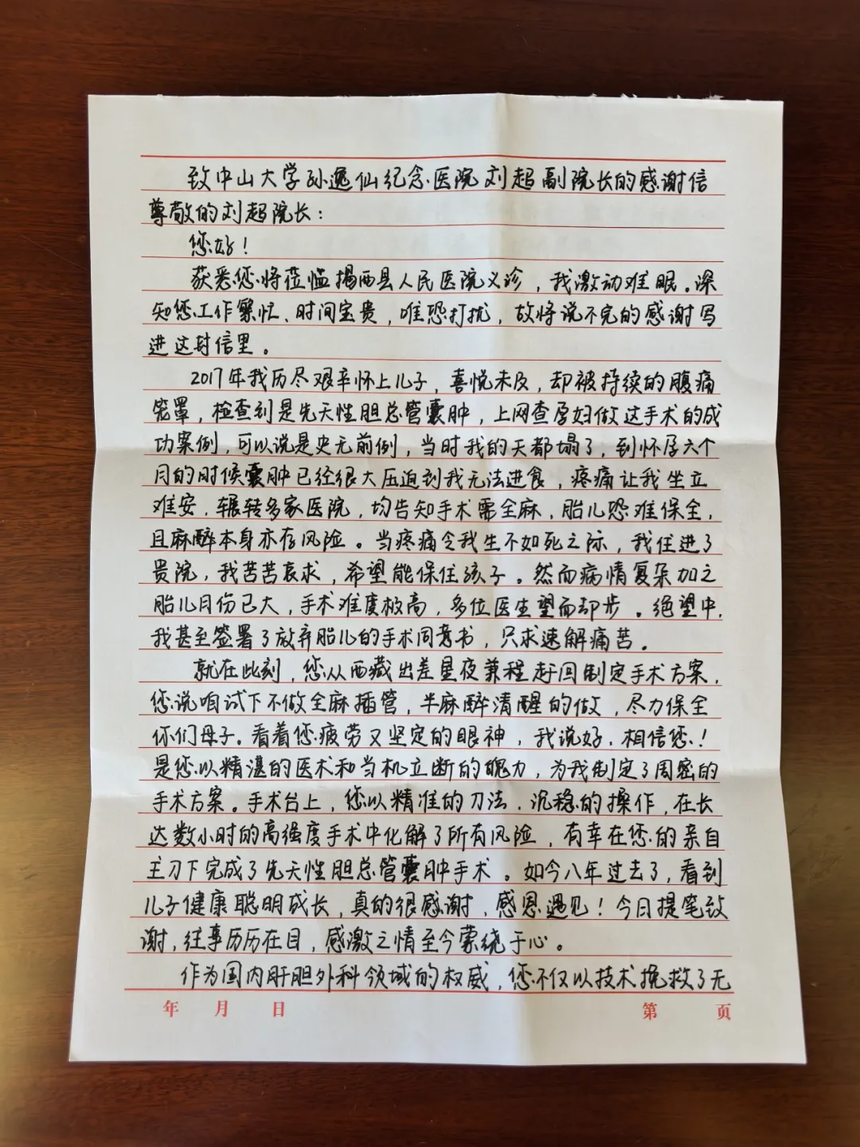 致中山大学孙逸仙纪念医院刘超副院长的感谢信
尊敬的刘超院长：
您好！
获悉您将莅临揭西县人民医院义诊，我激动难眠。深
知您工作繁忙、时间宝贵，唯恐打扰，故将说不完的感谢写
进这封信里。
2017年我历尽艰辛怀上儿子，喜悦未及，却被持续的腹痛
笼罩，检查到是先天性胆总管囊肿，上网查孕妇做这手术的成
功案例，可以说是史无前例，当时我的天都塌了，到怀孕六个
月的时候囊肿已经很大压迫到我无法进食，疼痛让我坐立
难安，辗转多家医院，均告知手术需全麻，胎儿恐难保全，
且麻醉本身亦存风险。当疼痛令我生不如死之际，我住进了
贵院，我苦苦哀求，希望能保住孩子。然而病情复杂加之
胎儿月份已大，手术难度极高，多位医生望而却步。绝望中，
我甚至签署了放弃胎儿的手术同意书，只求速解痛苦。
就在此刻，您从西藏出差星夜兼程赶回制定手术方案，
您说咱试下不做全麻插管，半麻醉清醒的做，尽力保全
你们母子。看着您疲劳又坚定的眼神，我说好，相信您！
是您以精湛的医术和当机立断的魄力，为我制定了周密的
手术方案。手术台上，您以精准的刀法，沉稳的操作，在长
达数小时的高强度手术中化解了所有风险，有幸在您的亲自
主刀下完成了先天性胆总管囊肿手术。如今八年过去了，看到
儿子健康聪明成长，真的很感谢，感恩遇见！今日提笔致
谢，往事历历在目，感激之情至今萦绕于心。
作为国内肝胆外科领域的权威，您不仅以技术挽救了无
年 月 日 第 页